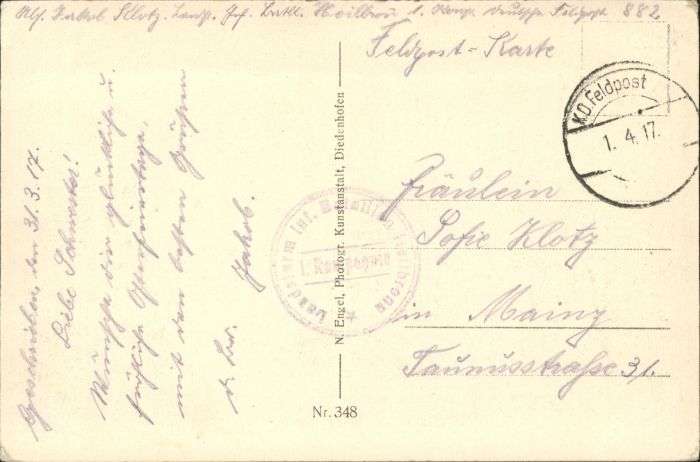 Abs. Jakob Klotz. Landst. Inf. Batl. Heilbron 1. Komp. Deutsche Feldpost 882
Feldpost-Karte
K.D. Feldpost
1. 4. 17.
Geschrieben, den 31.3.17.
Liebe Schwester!
Wünsche dir glückliche u.
fröhliche Osterfeiertage,
mit den besten Grüßen
d. Br. Jakob.
Fräulein
Sofie Klotz
in Mainz
Taunusstraße 31.
Landsturm Inf. Bataillon Heilbronn
1. Kompagnie
N. Engel, Photogr. Kunstanstalt, Diedenhofen
Nr. 348